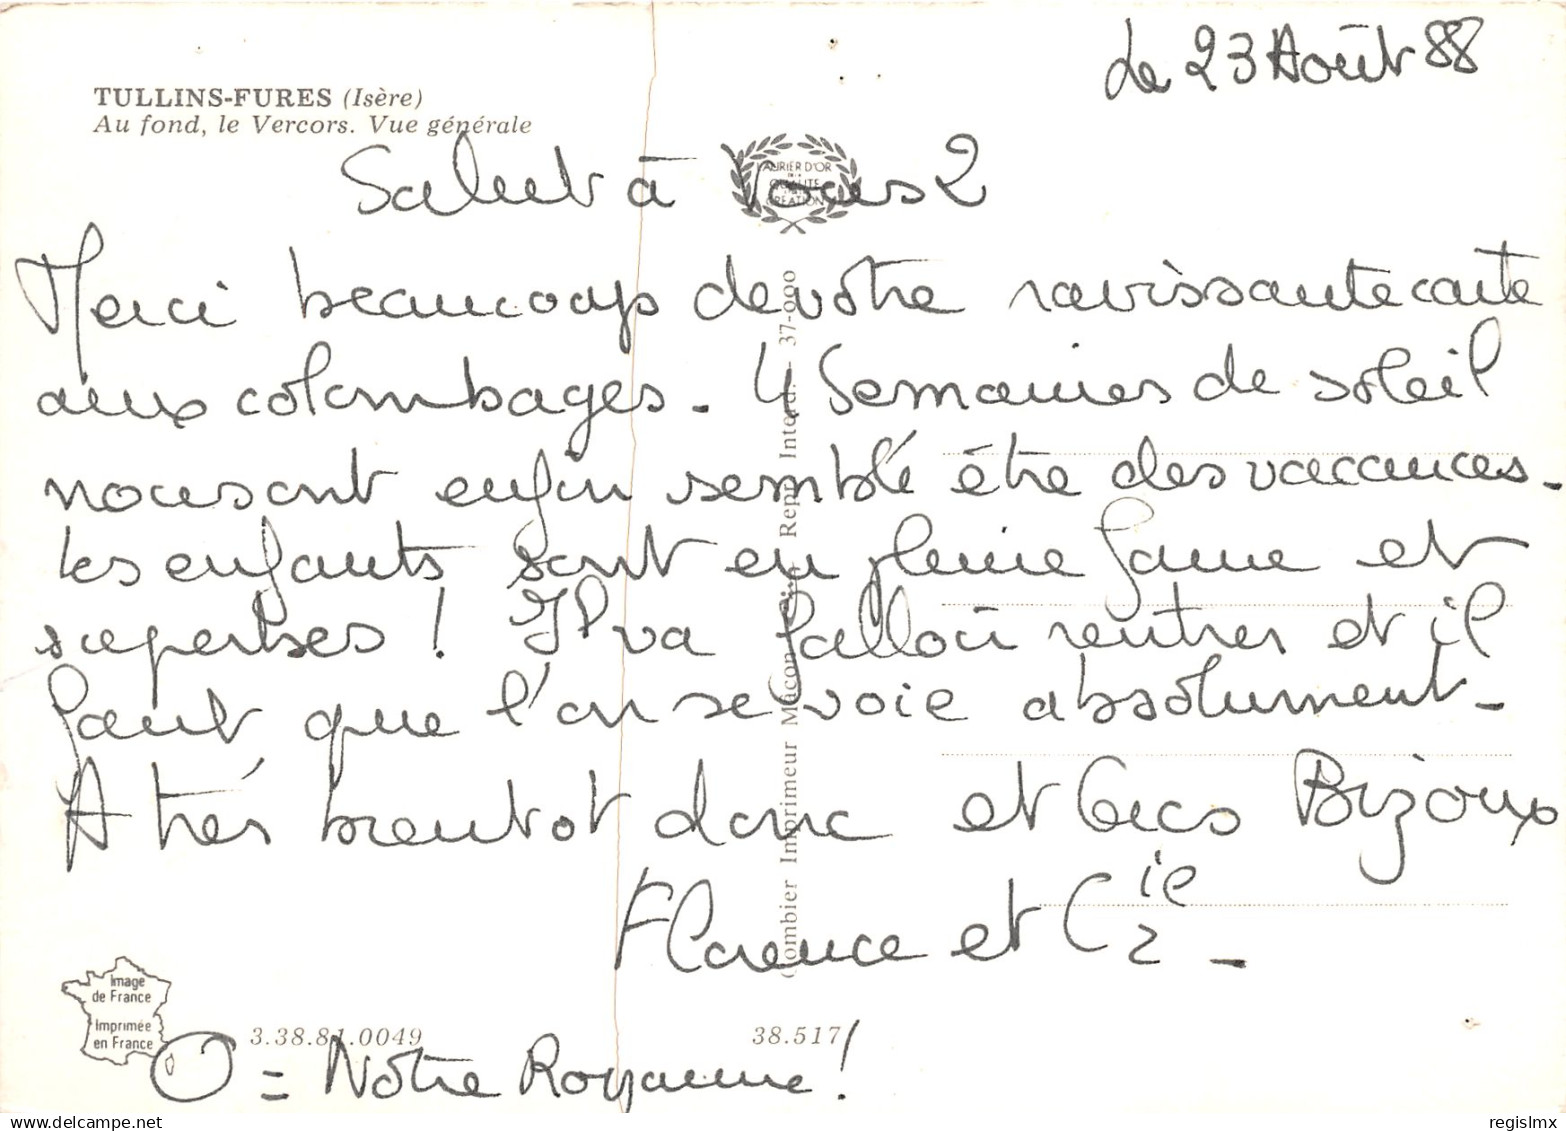 Le 23 Août 88
TULLINS-FURES (Isère)
Au fond, le Vercors. Vue générale
Salut à Vous 2
LAURIER D'OR
DE LA
QUALITE
CREATION
Merci beaucoup de votre ravissante carte
aux colombages. 4 Semaines de soleil
nous ont enfin semblé être des vacances.
Les enfants sont en pleine forme et
superbes ! Il va falloir rentrer et il
faut que l'on se voie absolument.
A très bientot donc et Gros Bizoux
Florence et Cie.
Combier Imprimeur Mâcon Repr. Interd. 37-000
Image
de France
Imprimée
en France
3.38.81.0049
38.517
O = Notre Royaume !
© regislmx